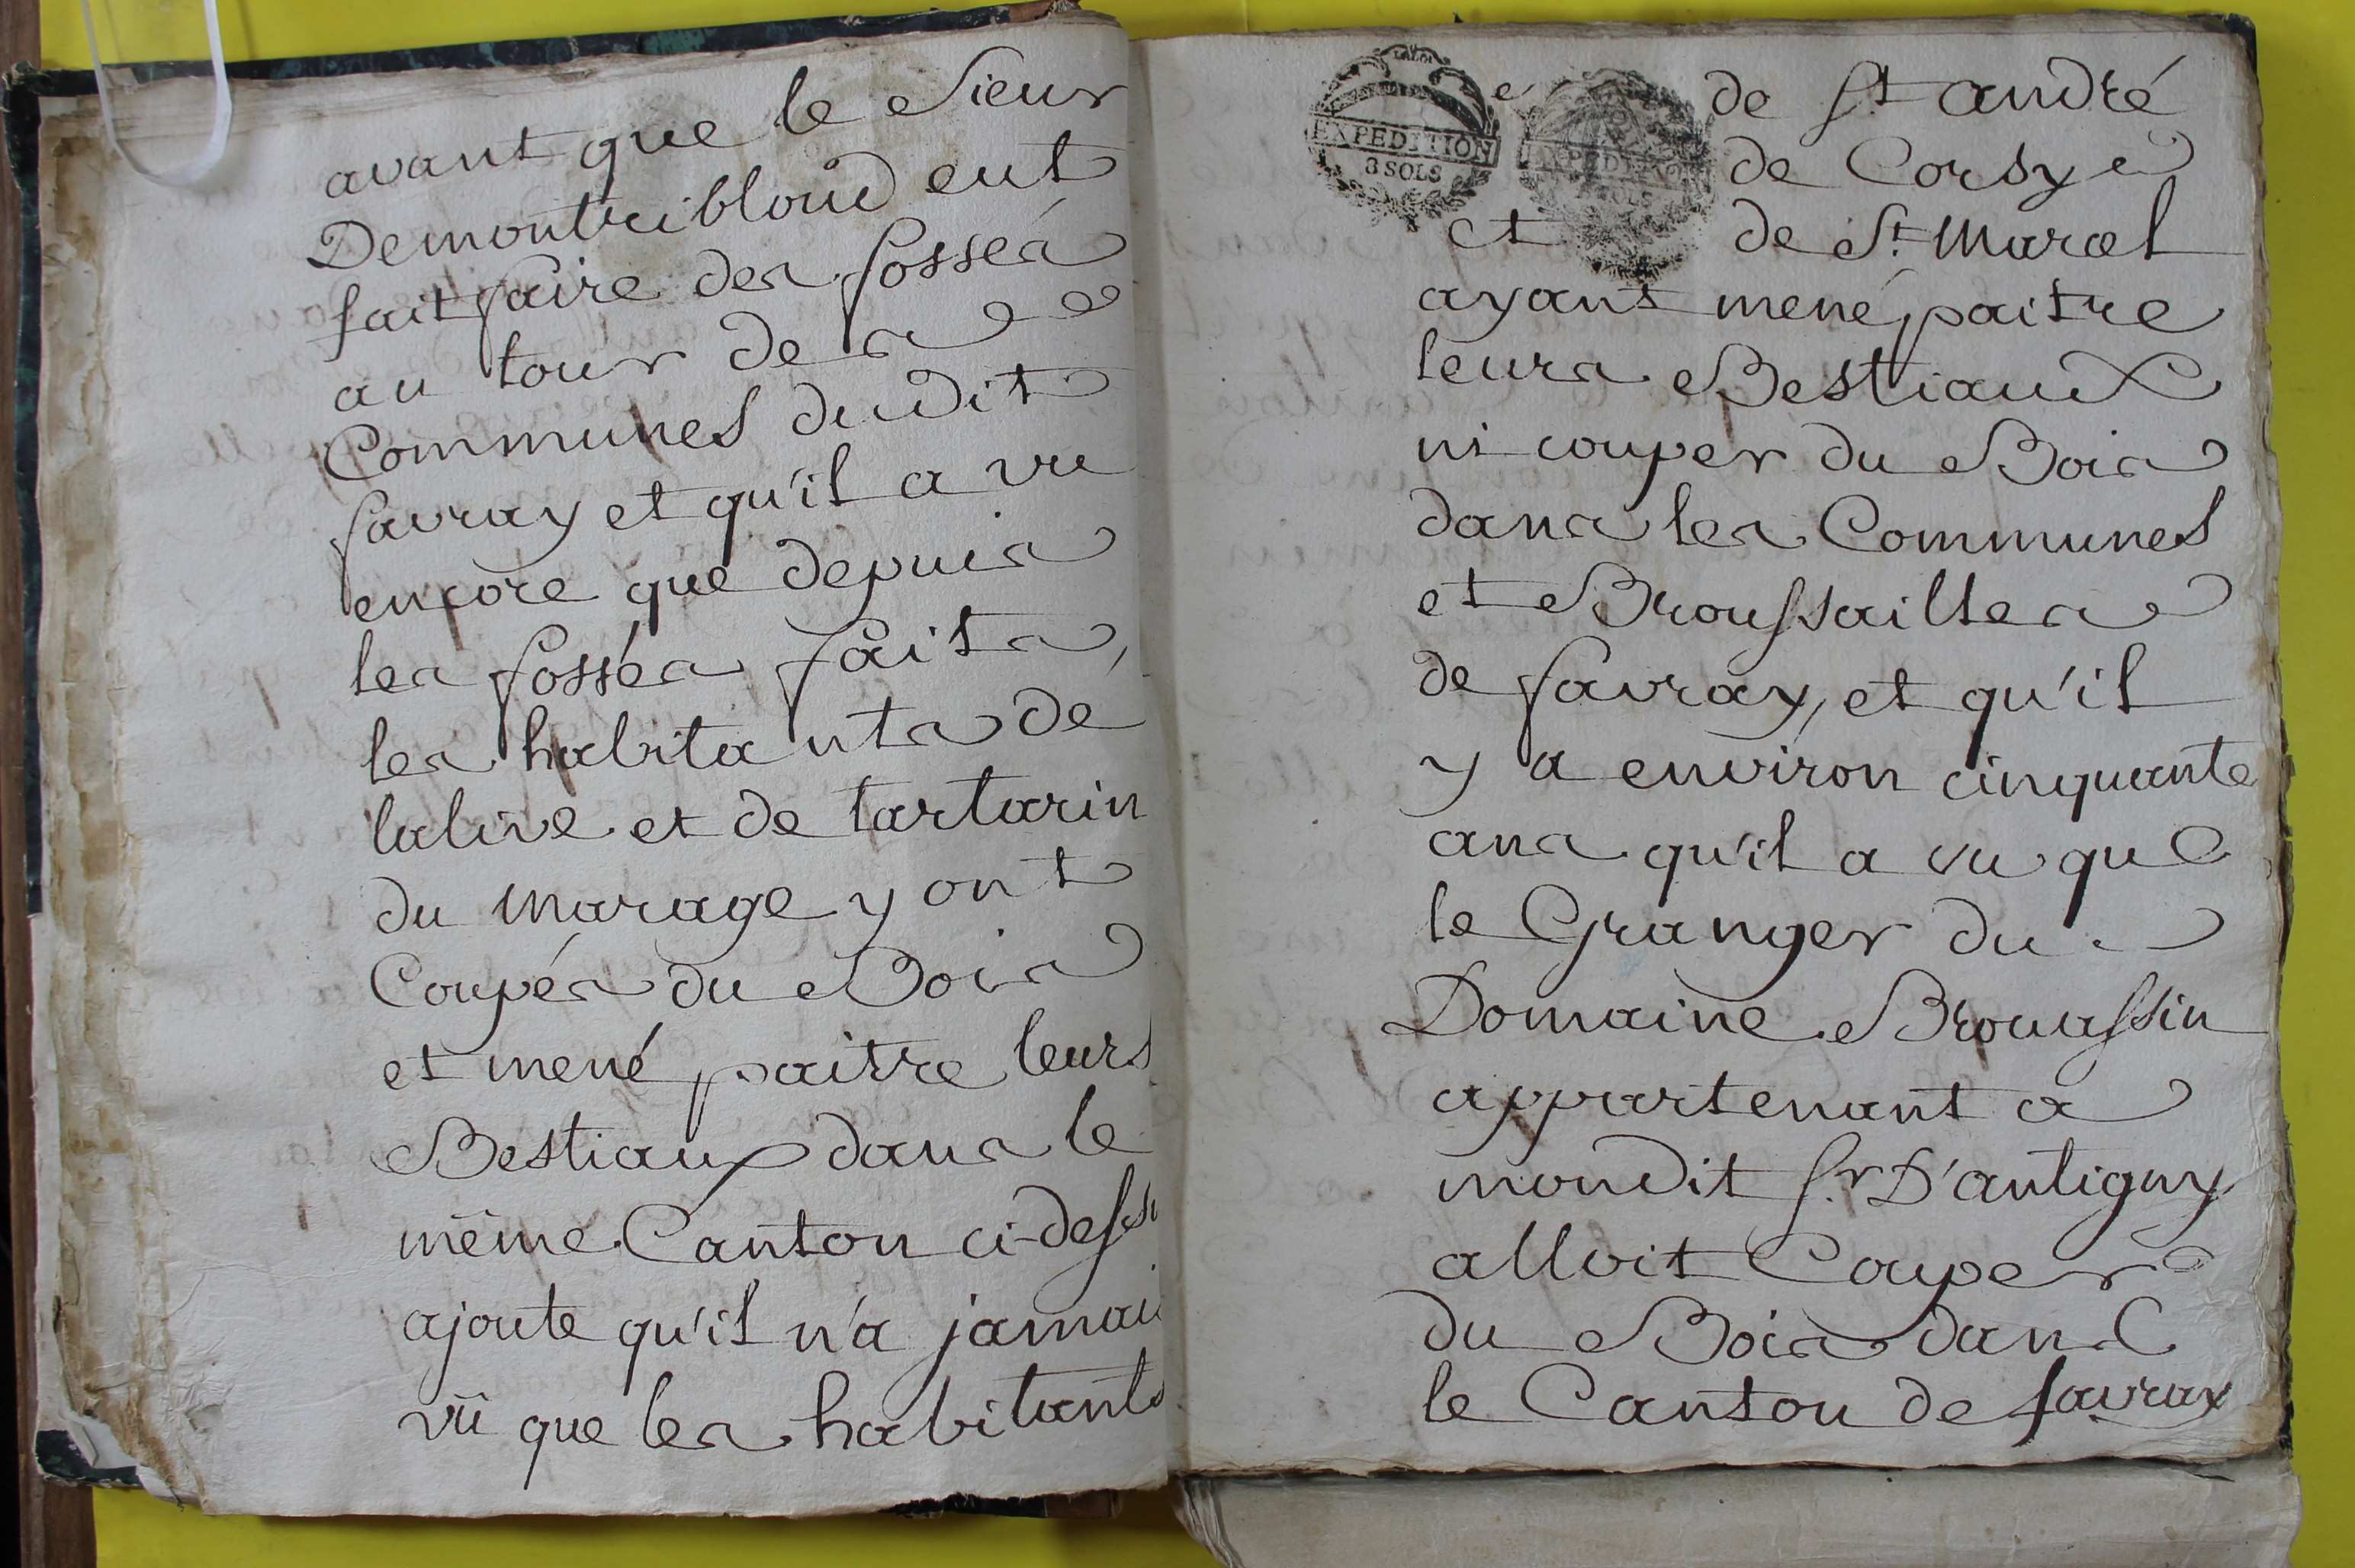 avant que le Sieur
Demontribloud eut
fait faire des fossés
au tour des
Communes dudit
favray et qu'il a vu
encore que depuis
les fossés faits,
les habitants de
lalive et de tartarin
du marage y ont
Coupés du Bois
et mené paitre leurs
Bestiaux dans le
même Canton ci-dessu
ajoute qu'il n'a jamai
vü que les habitants
EXPEDITION
3 SOLS
de St andré
de Corsy
et de St. Marcel
ayant mené paitre
leurs Bestiaux
ni couper du Bois
dans les Communes
et Broussailles
de favray, et qu'il
y a environ cinquante
ans qu'il a vu que
le Granger du
Domaine Brouassin
appartenant a
mondit Sr. D'antigny
alloit Couper
du Bois dans
le Canton de favray